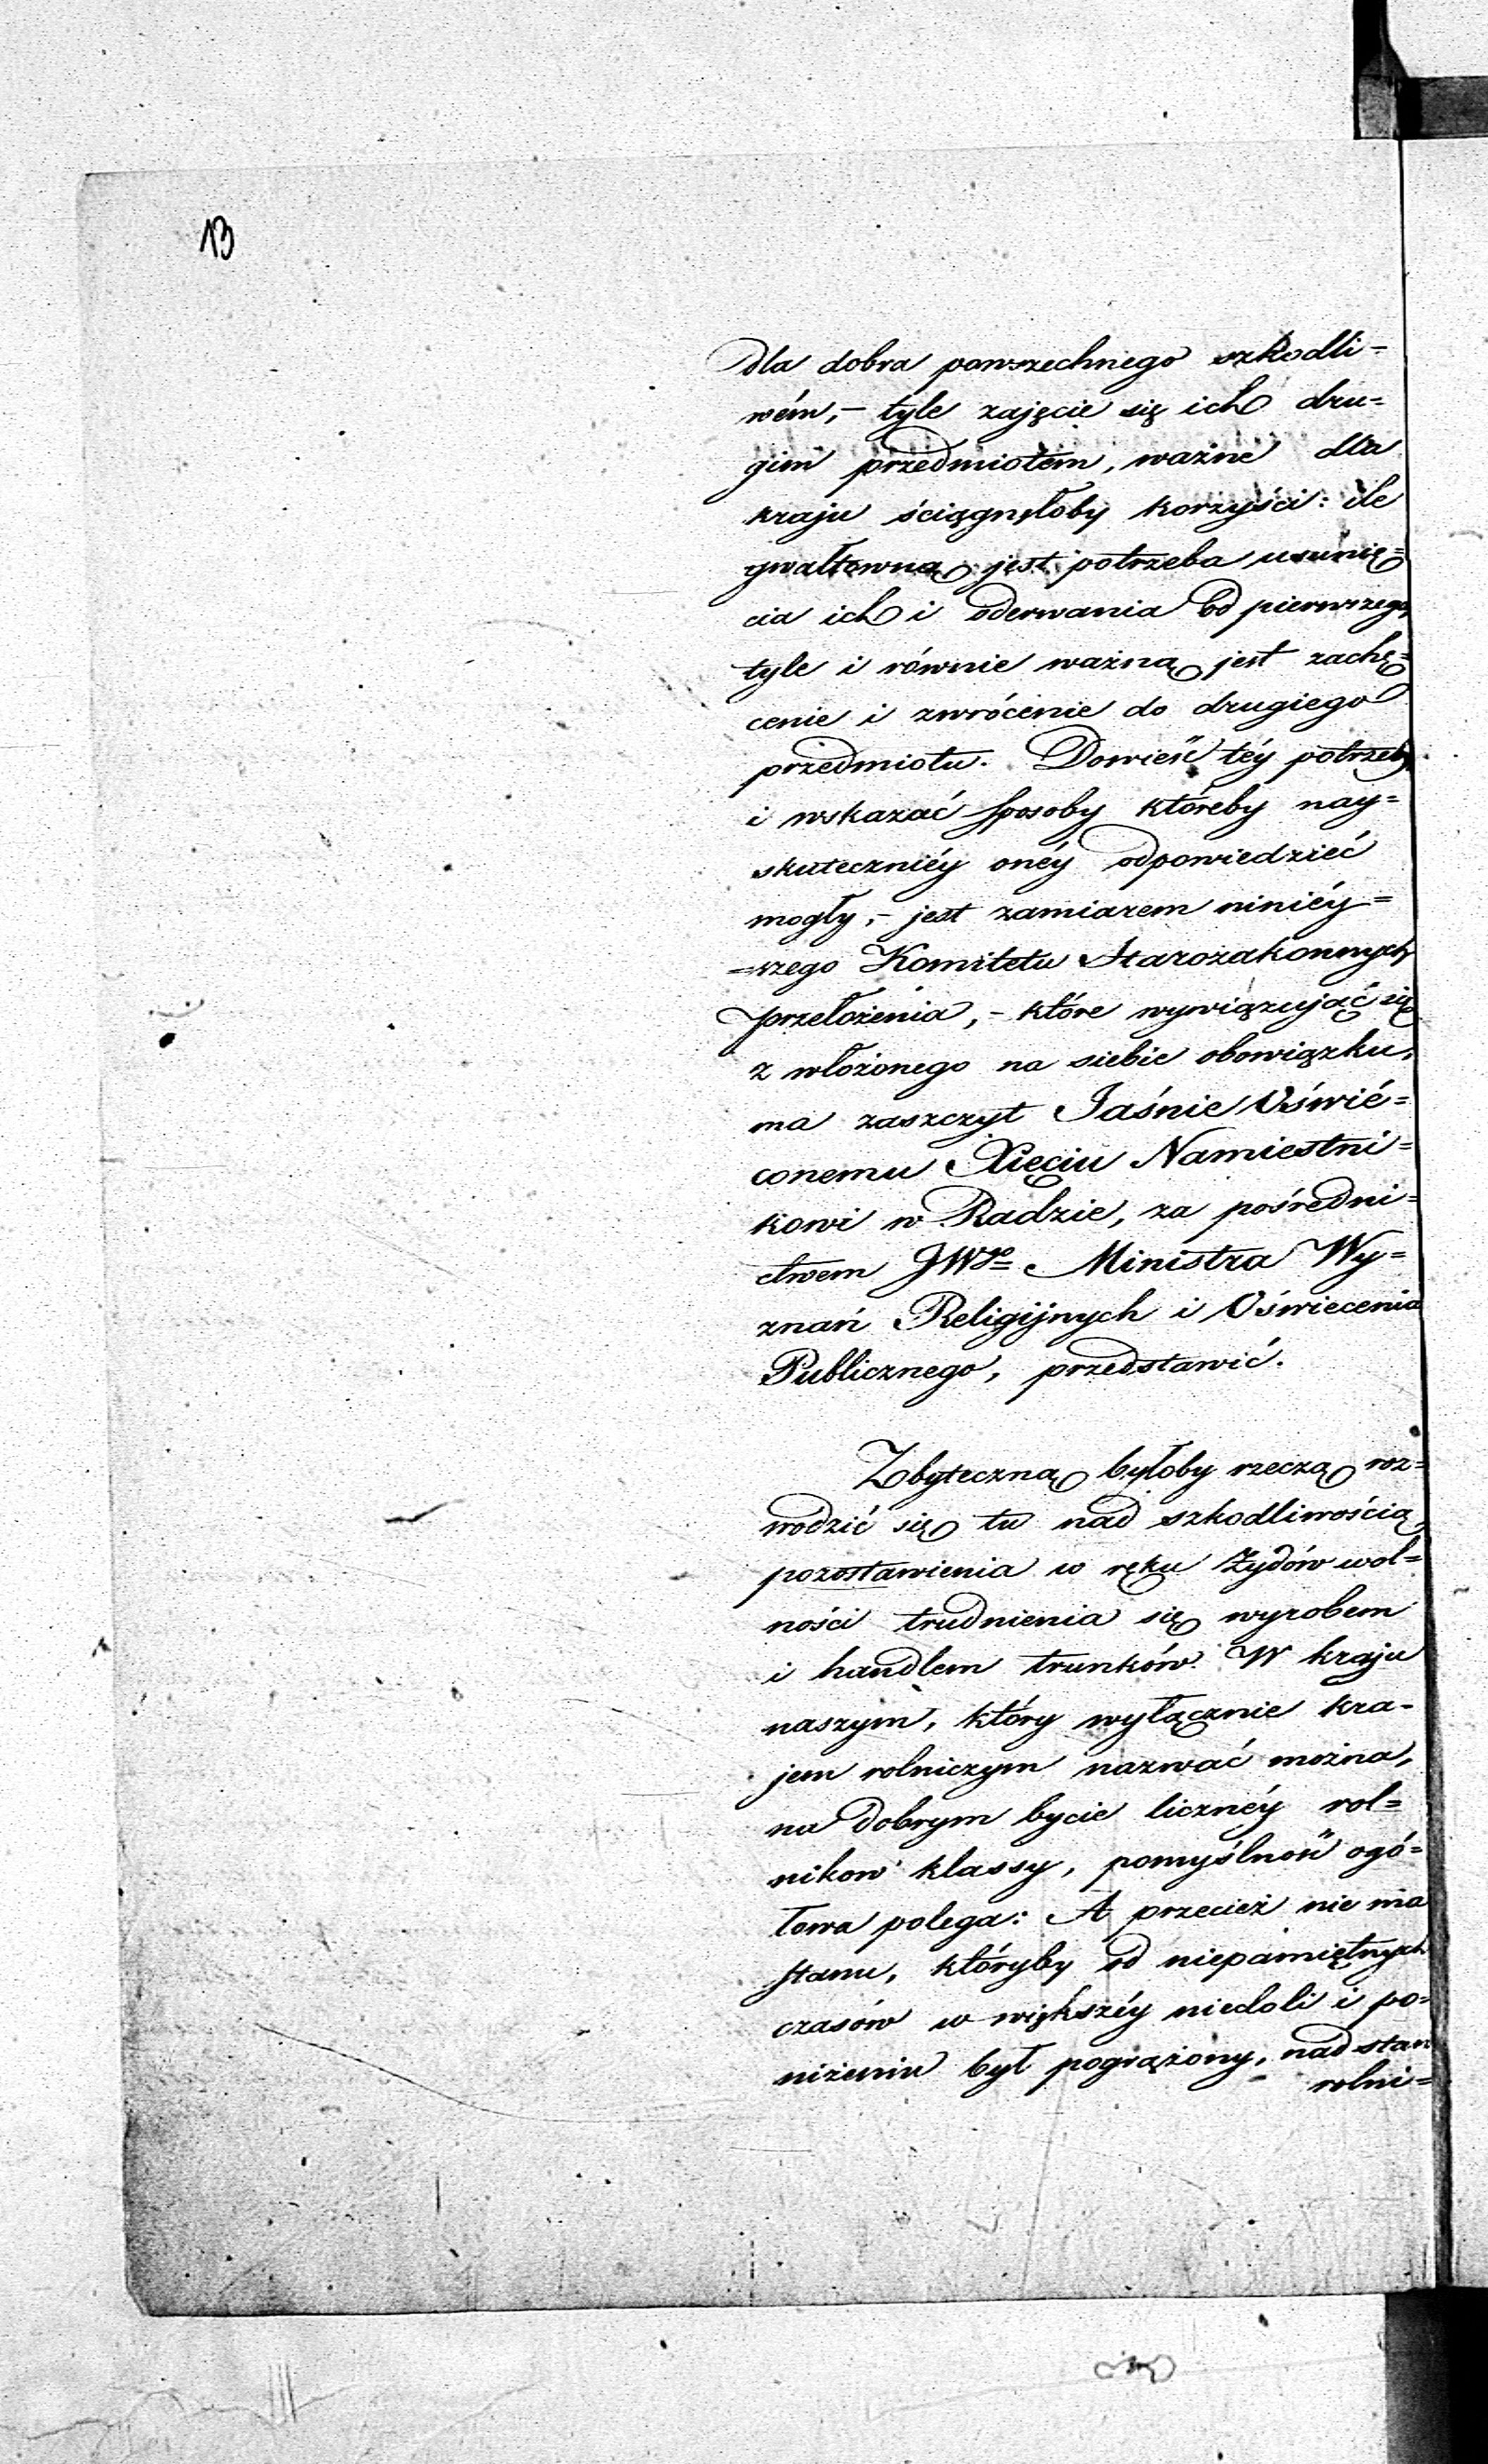 13
dla dobra powszechnego szkodli=
wém, – tyle zajęcie się ich dru=
gim przedmiotem, ważne dla
kraju ściągnęłoby korzyści: ile
gwałtowną jest potrzeba usunię=
cia ich i oderwania od pierwszego,
tyle i równie ważną jest zachę=
cenie i zwrócenie do drugiego
przedmiotu. Dowieść téy potrzeby
i wskazać sposoby któreby nay=
skuteczniéy onéy odpowiedzieć
mogły, – jest zamiarem niniéy=
=szego Komitetu Starozakonnych
przełożenia, – które wywiązując się
z włożonego na siebie obowiązku,
ma zaszczyt Jaśnie Oświé=
conemu Xięciu Namiestni=
kowi w Radzie, za pośredni=
ctwem JWgo Ministra Wy=
znań Religijnych i Oświecenia
Publicznego, przedstawić.
Zbyteczną byłoby rzeczą roz=
wodzić się tu nad szkodliwością
pozostawienia w ręku Żydów wol=
ności trudnienia się wyrobem
i handlem trunków. W kraju
naszym, który wyłącznie kra=
jem rolniczym nazwać można,
na dobrym bycie licznéy rol=
nikow klassy, pomyślność ogó=
łowa polega: A przecież nie ma
stanu, któryby od niepamiętnych
czasów w większéy niedoli i po=
niżeniu był pogrążony, nad stan
rolni=